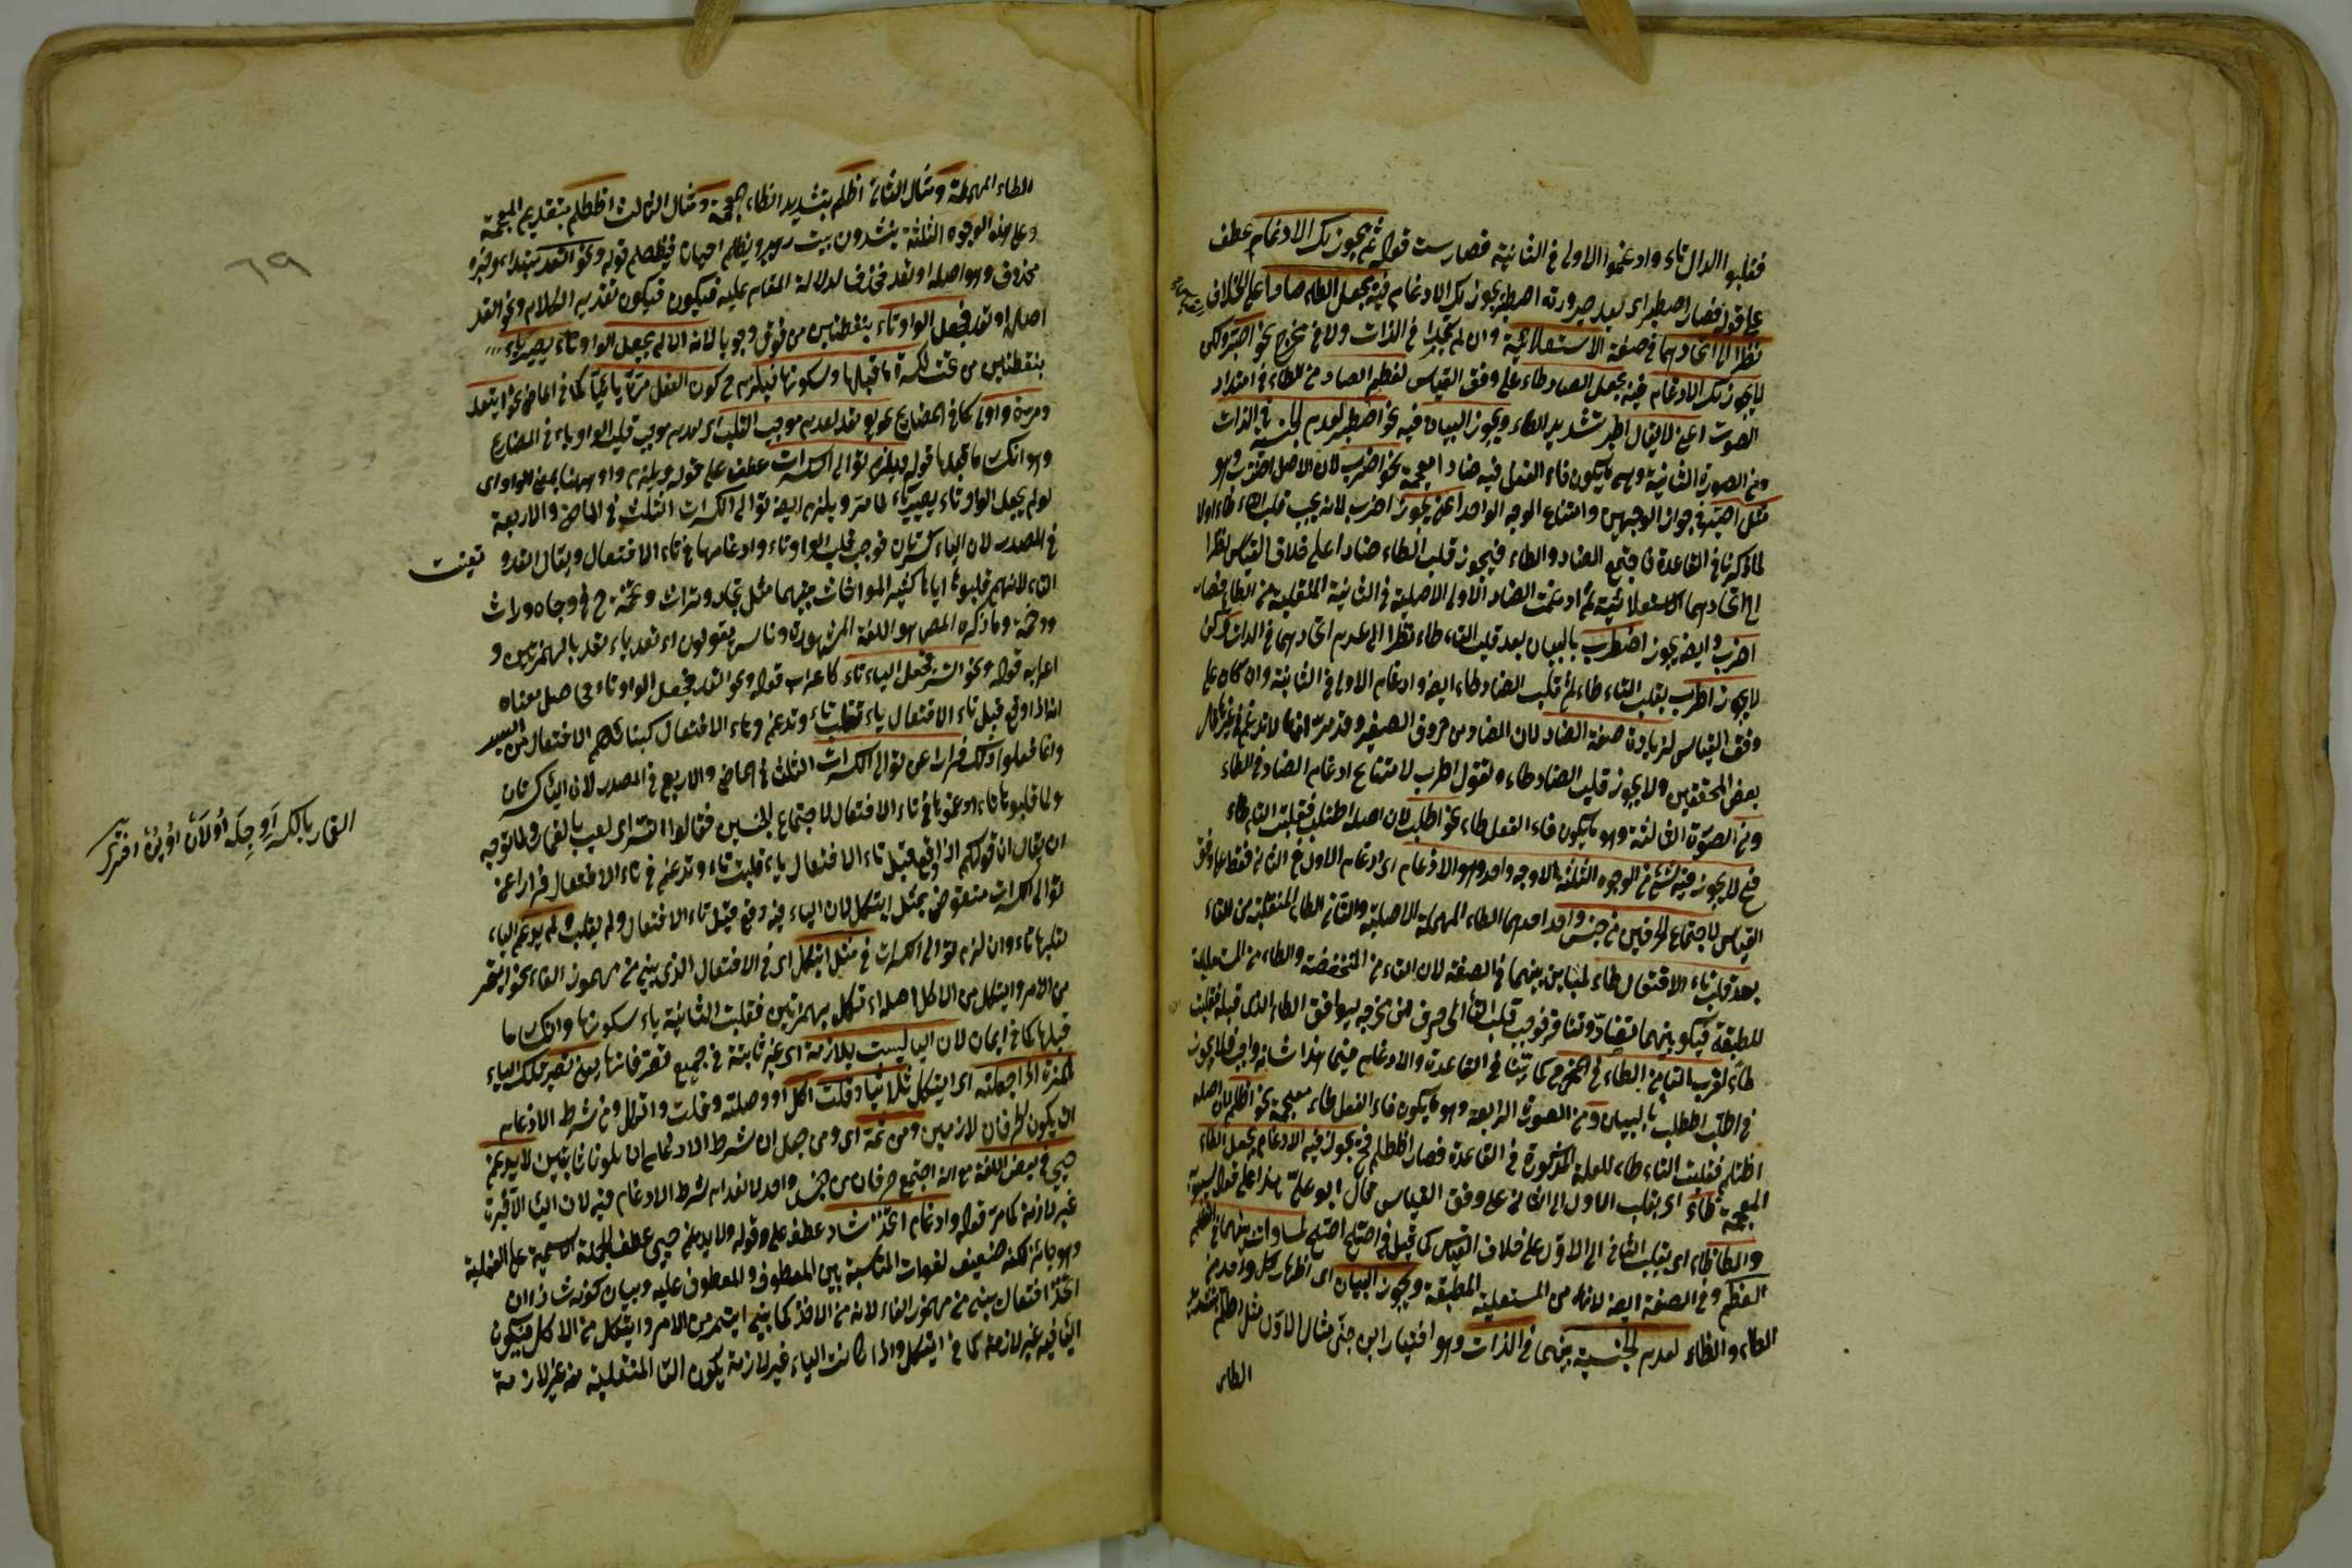 فقلبوا الدال تاء وادغموا الاولى في الثانية فصارست قوله ثم يجوز لك الادغام عطف
على قوله فصار اصطبر اى بعد صيرورته اصطبر يجوز لك الادغام فيه بجعل الطاء صادا على الخلاف
نظرا الى اتحادهما في صفة الاستعلائية وان لم يتحدا في الذات ولا في مخرج نحو اصبر ولكن
لا يجوز لك الادغام فيه بجعل الصاد طاء على وفق القياس لعظم الصاد من الطاء في امتداد
الصوت اعنى لا يقال اطبر بتشديد الطاء ويجوز البيان فيه نحو اصطبر لعدم الجنسية في الذات
ومن الصورة الثانية وهى ما يكون فاء الفعل فيه ضادا معجمة نحو اضرب لان الاصل اضترب وهو
مثل اصبر في جواز الوجهين وامتناع الوجه الواحد اعنى يجوز اضرب لانه يجب قلب التاء طاء اولا
لما ذكرنا في القاعدة فاجتمع الضاد والطاء فيجوز قلب الطاء ضادا على خلاف القياس نظرا
الى اتحادهما الاستعلائية ثم ادغمت الضاد الاولى الاصلية في الثانية المنقلبة من الطاء فصار
اضرب وايضا يجوز اضطرب بالبيان بعد قلب التاء طاء نظرا الى عدم اتحادهما في الذات ولكن
لا يجوز اطرب بقلب التاء طاء ثم قلب الضاد طاء ايضا وادغام الاولى في الثانية وان كان على
وفق القياس لزيادة صفة الضاد لان الضاد من حروف الصفير وقد مر انها لا تدغم في غيرها قال
بعض المحققين ولا يجوز قلب الضاد طاء ولقول اطرب لامتناع ادغام الضاد في الطاء
ومن الصورة الثالثة وهو ما يكون فاء الفعل طاء نحو اطلب لان اصله اطتلب فقلبت التاء طاء
فح لا يجوز فيه شئ من الوجوه الثلثة الا وجه واحد وهو الادغام اى ادغام الاول في الثانى فقط على وفق
القياس لاجتماع الحرفين من جنس واحد احدهما الطاء المهملة الاصلية والثانى الطاء المنقلبة من التاء
بعد قلب تاء الافتعال طاء لتباين بينهما في الصفة لان التاء من المنخفضة والطاء من المستعلية
المطبقة فيكون بينهما تضاد وتنافر فوجب قلب التاء الى حرف من مخرجه ليوافق الطاء الذى قبله فقلبت
طاء لقرب التاء من الطاء في المخرج كما بينا في القاعدة والادغام فيما هذا شانه واجب فلا يجوز
في اطلب اططلب بالبيان ومن الصورة الرابعة وهو ما يكون فاء الفعل ظاء معجمة نحو اظلم لان اصله
اظتلم فقلبت التاء طاء للعلة المذكورة في القاعدة فصار اظطلم فح يجوز فيه الادغام بجعل الطاء
المعجمة طاء اى بقلب الاول الى الثانى على وفق القياس قال ابو على هذا على قول سيبويه
والطاء ظاء اى بقلب الثانى الى الاول على خلاف القياس كما قيل في اصتلح اصلح لمساواة بينهما في العظم
العظم وفي الصفة ايضا لانهما من المستعلية المطبقة ويجوز البيان اى اظهار كل واحد من
الطاء والظاء لعدم الجنسية بينهما في الذات وهو اختيار ابن جنى مثال الاول مثل اطلم بتشديد
الطاء
الطاء المهملة ومثال الثانى اظلم بتشديد الظاء المعجمة ومثال الثالث اظطلم بتقديم المعجمة
وعلى هذه الوجوه الثلثة ينشدون بيت زهير ويظلم احيانا فيظطلم قوله ونحو اتعد مبتداء وخبره
محذوف وهو اصله اوتعد فحذف لدلالة المقام عليه فيكون فيكون تقدير الكلام ونحو اتعد
اصله اوتعد فجعل الواو تاء بنقطتين من فوق وجوبا لانه ان لم يجعل الواو تاء يصير ياء
بنقطتين من تحت لكسرة ما قبلها وسكونها فيلزم ح كون الفعل مرة يائيا كما في الماضى نحو ايتعد
ومرة واويا كما في المضارع نحو يوتعد لعدم موجب القلب اى لعدم موجب قلب الواو ياء في المضارع
وهو انكسار ما قبلها قوله ويلزم توالى الكسرات عطف على قوله ويلزم واو ههنا بمعنى الواو اى
لو لم يجعل الواو تاء يصير ياء لما مر ويلزم ايضا توالى الكسرات الثلث في الماضى والاربعة
في المصدر لان الياء كسرتان فوجب قلب الواو تاء وادغامها في تاء الافتعال ويقال اتعد و تعينت
التاء لانهم قلبوها اياها كثير المواخاة بينهما مثل تجاه وتراث وتخمة ح في وجاه ووراث
ووخمة وما ذكره المص هو اللغة المشهورة وناس يقولون اءتعد ياءتعد بالهمزتين و
اعرابه قوله ونحو اتسر فجعل الياء تاء كاعراب قوله ونحو اتعد فجعل الواو تاء وحاصل معناه
انه اذا وقع قبل تاء الافتعال ياء تقلب تاء وتدغم في تاء الافتعال كبنائهم الافتعال من اليسر
وانما فعلوا ذلك فرارا عن توالى الكسرات الثلث في الماضى والاربع في المصدر لان الياء كسرتان
ولما قلبوها تاء ادغموها في تاء الافتعال لاجتماع الجنسين فقالوا اتسر اى لعب بالقمار ولما توجه
ان يقال ان قولكم اذا وقع قبل تاء الافتعال ياء قلبت تاء وتدغم في تاء الافتعال فرارا عن
توالى الكسرات منقوض بمثل ايتكل لان الياء فيه وقع قبل تاء الافتعال ولم يقلب ولم يدغم الياء
لقلبها تاء وان لزم توالى الكسرات في مثل ايتكل اى في الافتعال الذى بنى من مهموز الفاء نحو ايتمر
من الامر وايتكل من الاكل اصله اءتكل بهمزتين فقلبت الثانية ياء لسكونها وانكسار ما
قبلها كما في ايمان لان الياء ليست بلازمة اى غير ثابتة في جميع تصرفاتها يعنى تصير تلك الياء
همزة اذا جعلته اى ايتكل ثلاثيا وقلت اكل او وصلته وقلت واتكل ومن شرط الادغام
ان يكون الحرفان لازمين ومن ثمة اى ومن اجل ان شرط الادغام ان يكونا ثابتين لا يدغم
حيى في بعض اللغة مع انه اجتمع حرفان من جنس واحد لانعدام شرط الادغام فيه لان الياء الاخيرة
غير لازمة كما مر قوله وادغام اتخذ شاذ عطف على وقوله ولا يدغم حيى عطف الجملة الاسمية على الفعلية
وهو جائز لكنه ضعيف لفوات المناسبة بين المعطوف والمعطوف عليه وبيان كونه شاذا ان
اتخذ افتعال بنى من مهموز الفاء لانه من الاخذ كما بنى ايتمر من الامر وايتكل من الاكل فيكون
الياء فيه غير لازمة كما في ايتكل واذا كانت الياء غير لازمة يكون التاء المنقلبة منه غير لازمة
٦٩